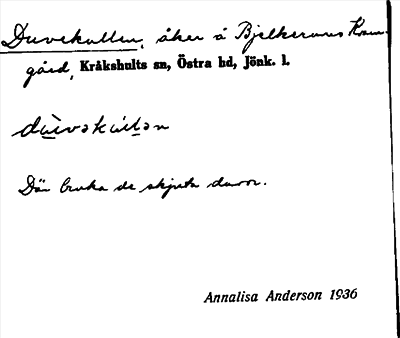 Duvekullen, åker å Bjelkerums
gård, Kråkshults sn, Östra hd, Jönk. l.
dùvəkúl̥ən
Där bruka de skjuta duvor.
Annalisa Anderson 1936